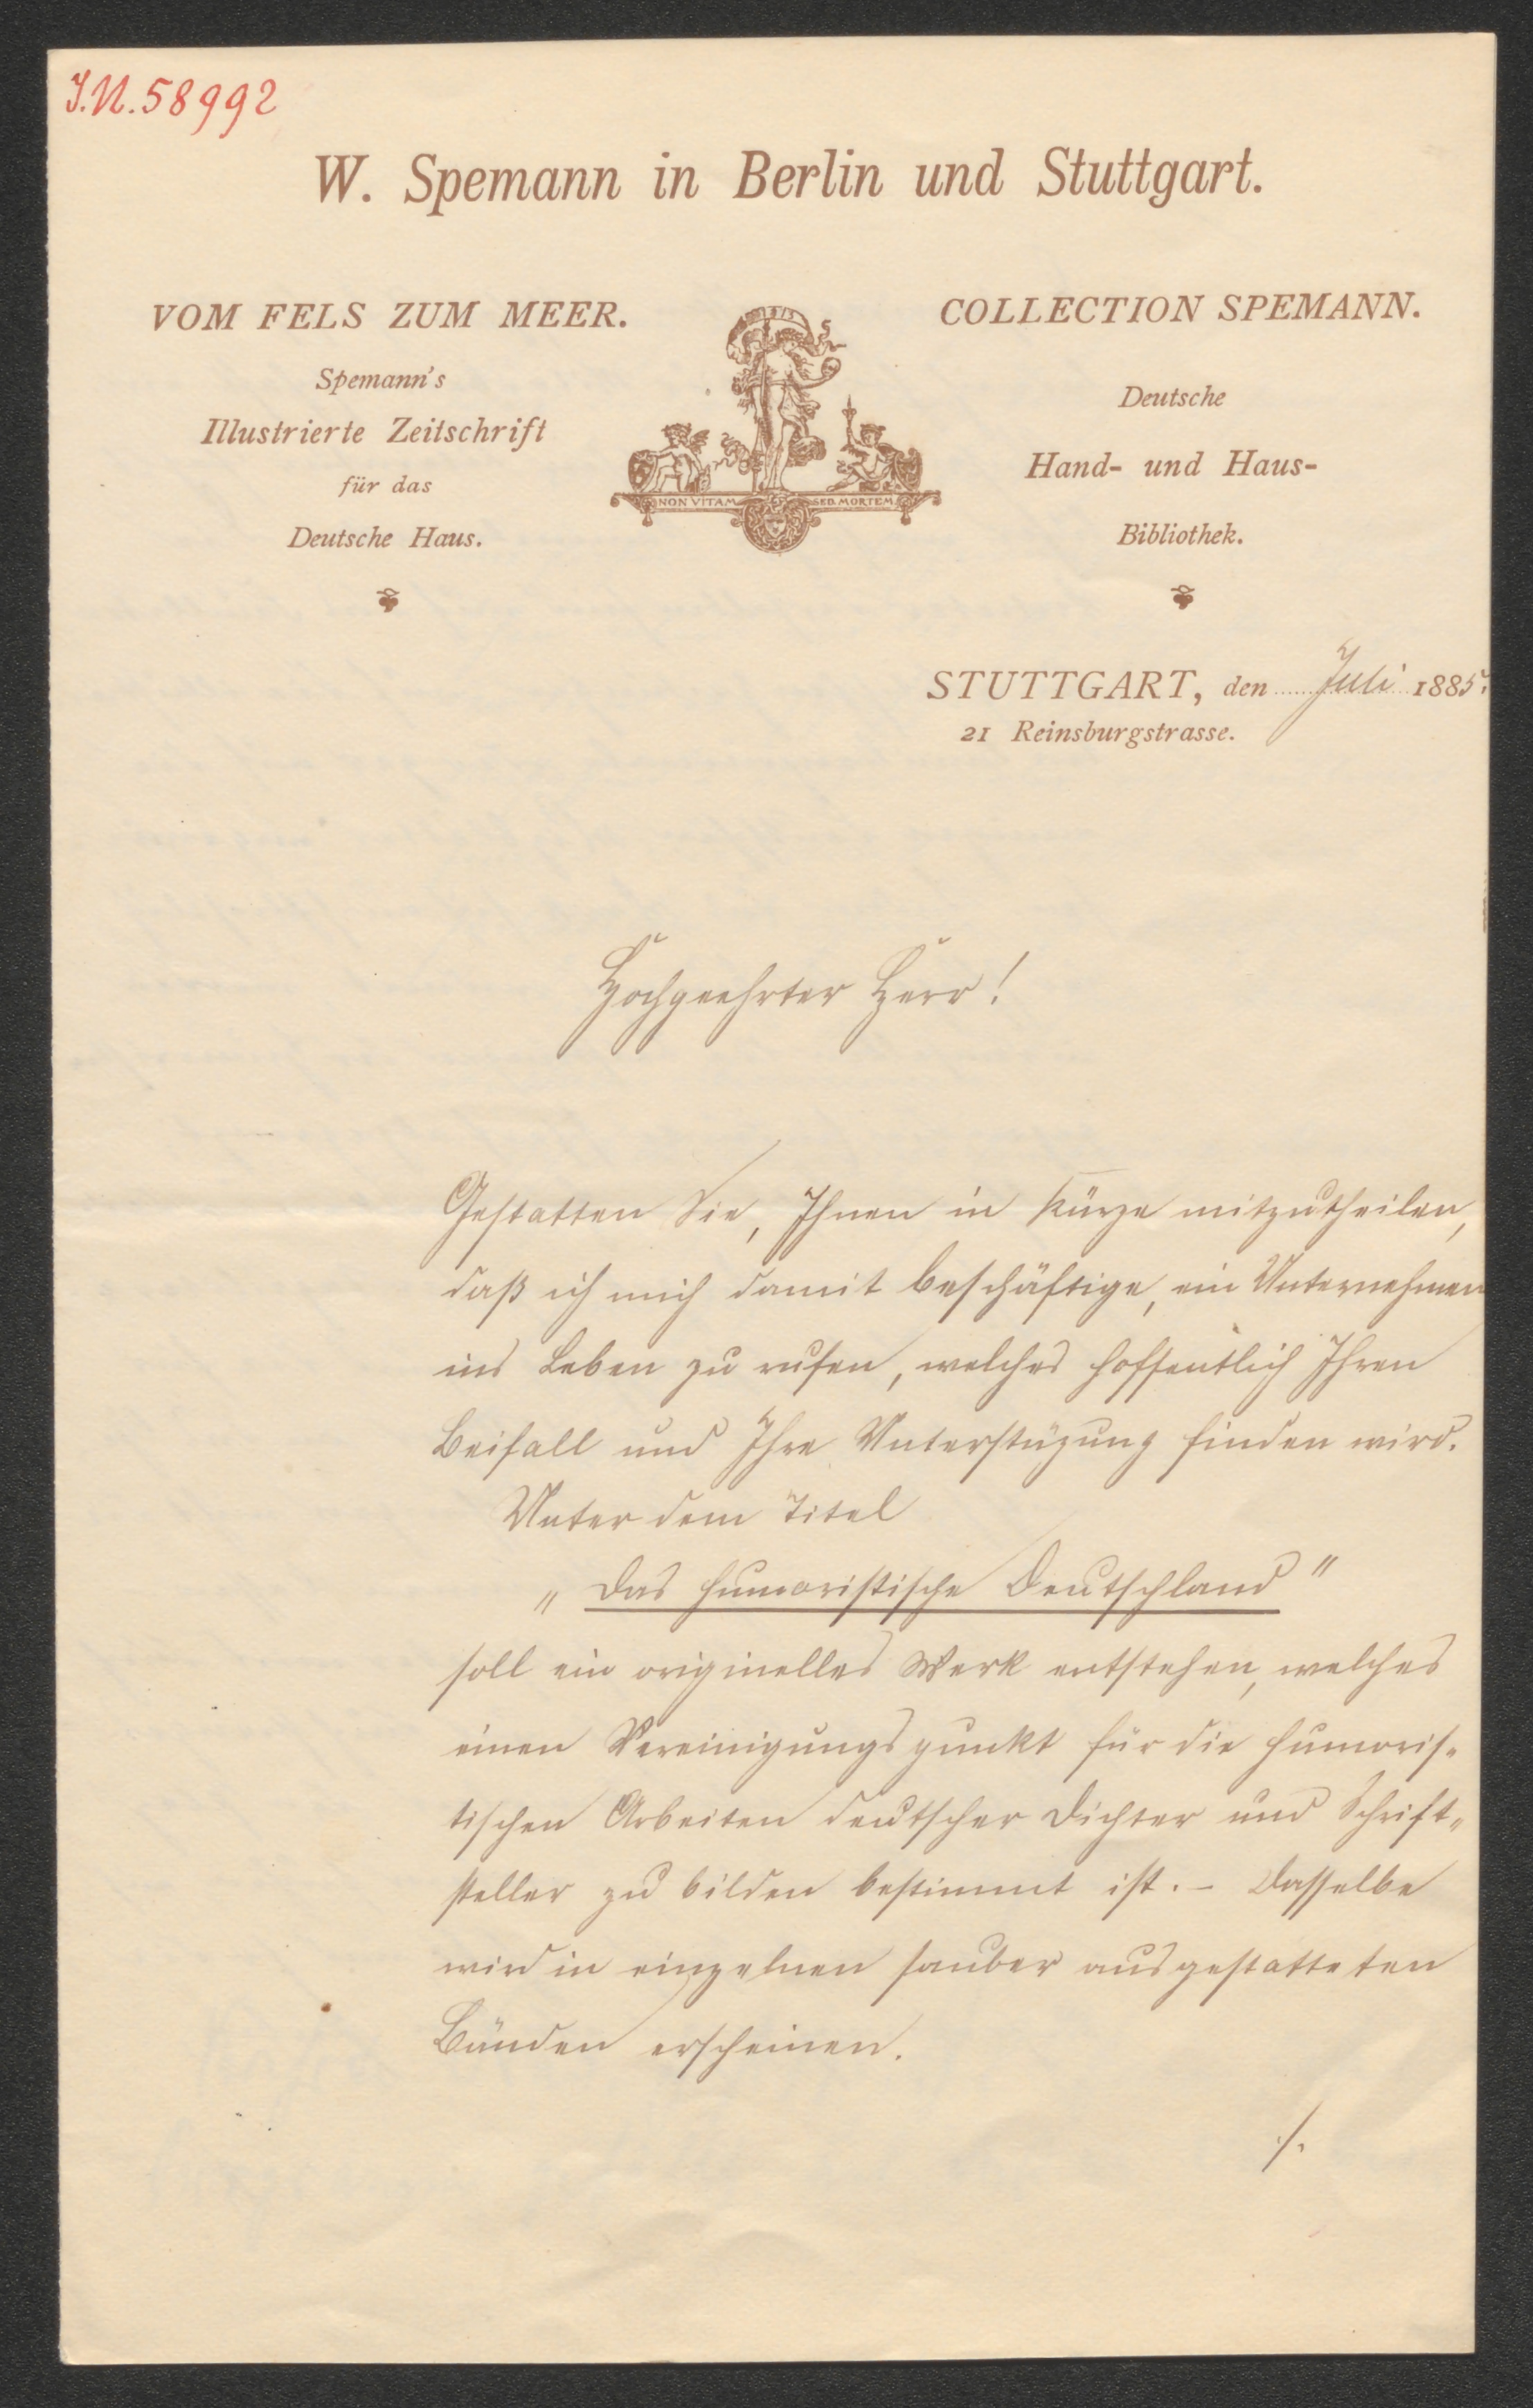 J.N. 58992
W. Spemann in Berlin und Stuttgart.
VOM FELS ZUM MEER.
Spemann's
Illustrierte Zeitschrift
für das
Deutsche Haus.
NON VITAM SED MORTEM
COLLECTION SPEMANN.
Deutsche
Hand- und Haus-
Bibliothek.
STUTTGART, den Juli 1885.
21 Reinsburgstrasse.
Hochgeehrter Herr!
Gestatten Sie, Ihnen in Kürze mitzutheilen,
daß ich mich damit beschäftige, ein Unternehmen
ins Leben zu rufen, welches hoffentlich Ihren
Beifall und Ihre Unterstüzung finden wird.
Unter dem Titel
„Das humoristische Deutschland"
soll ein originelles Werk entstehen, welches
einen Vereinigungspunkt für die humoris-
tischen Arbeiten deutscher Dichter und Schrift-
steller zu bilden bestimmt ist. – Dasselbe
wird in einzelnen sauber ausgestatteten
Bänden erscheinen.
./.